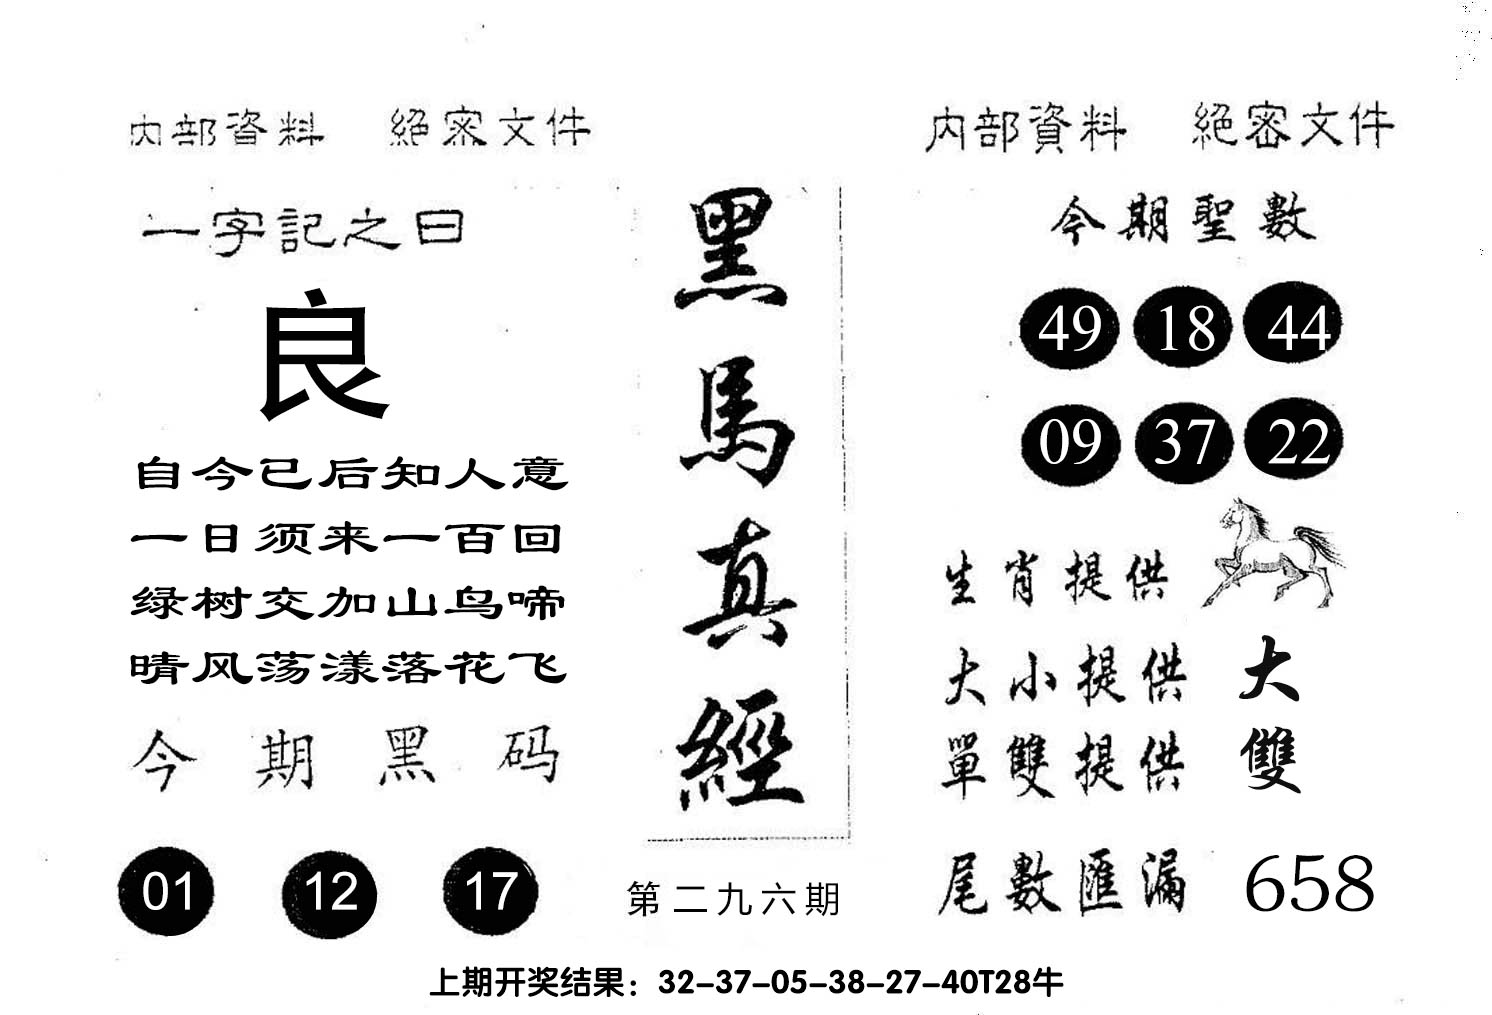 内部資料 絕密文件
一字記之曰
良
自今已后知人意
一日须来一百回
绿树交加山鸟啼
晴风荡漾落花飞
今期黑码
01 12 17
黑馬真經
第二九六期
内部資料 絕密文件
今期聖數
49 18 44
09 37 22
生肖提供
大小提供 大
單雙提供 雙
尾數匯漏 658
上期开奖结果：32-37-05-38-27-40T28牛